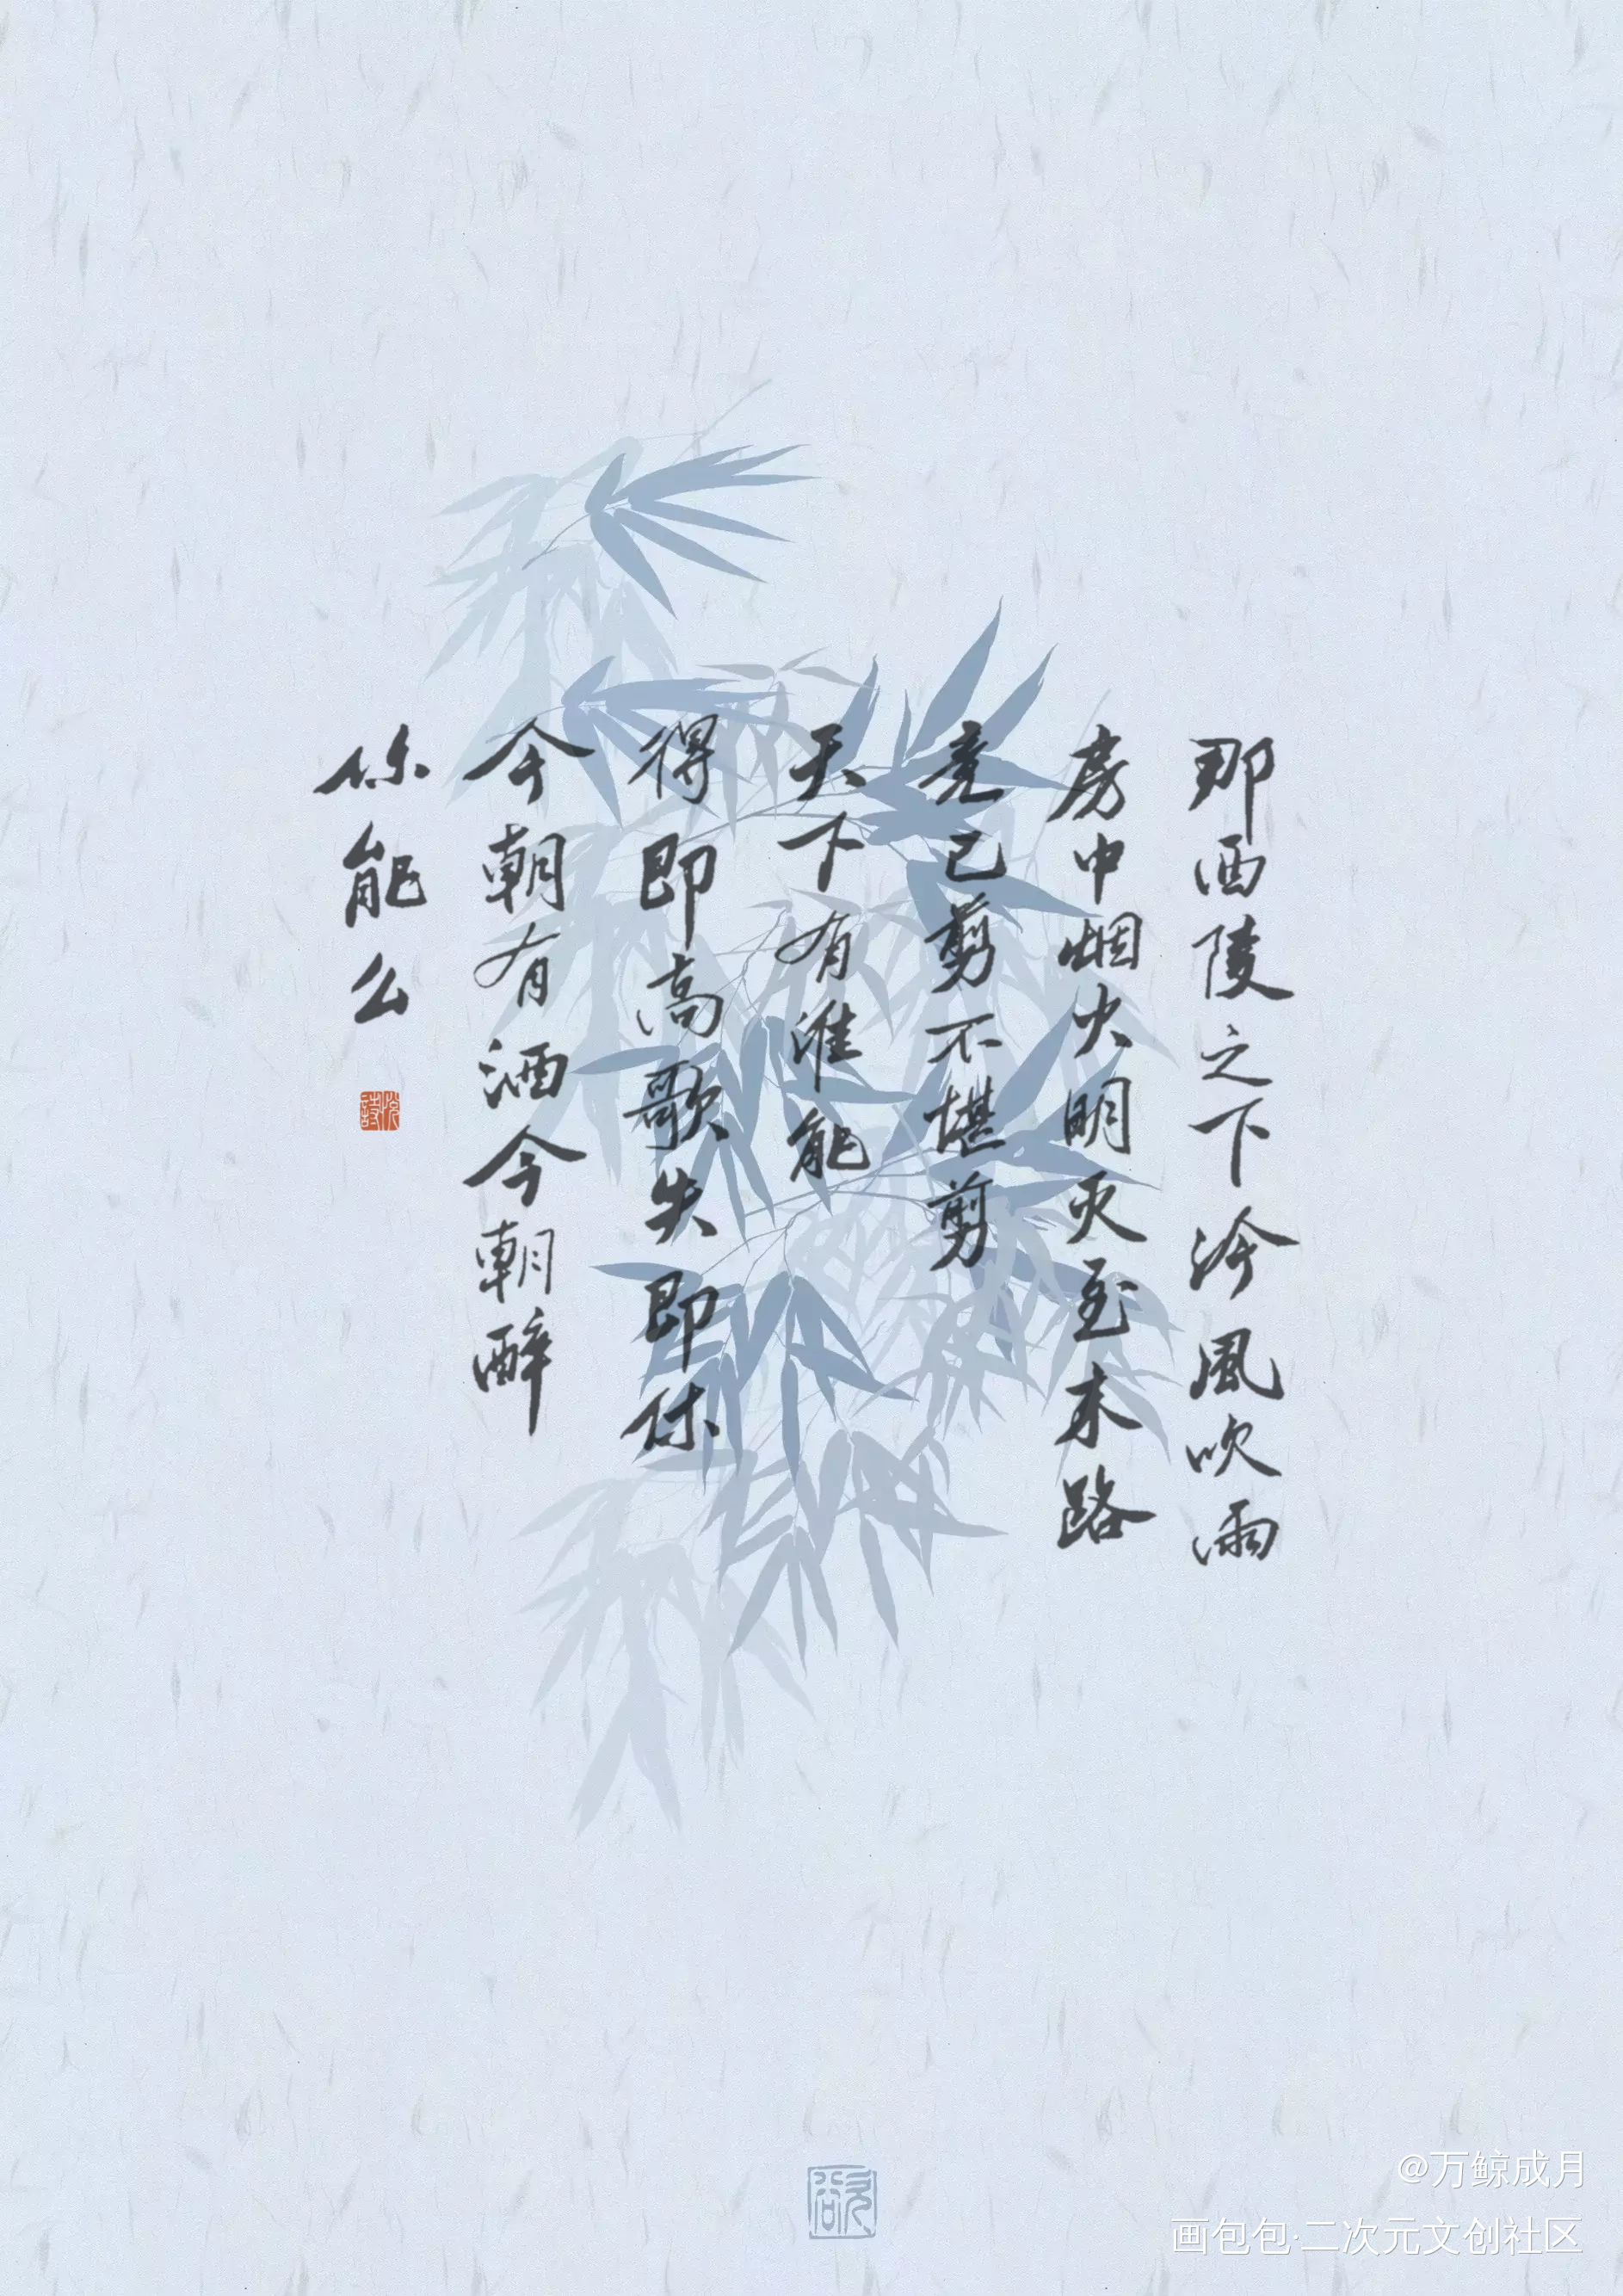 那西陵之下冷風吹雨
房中烟火明灭至末路
竟已剪不堪剪
天下有谁能
得即高歌失即休
今朝有酒今朝醉
你能么
悦詩
欲
@万鲸成月
画包包·二次元文创社区